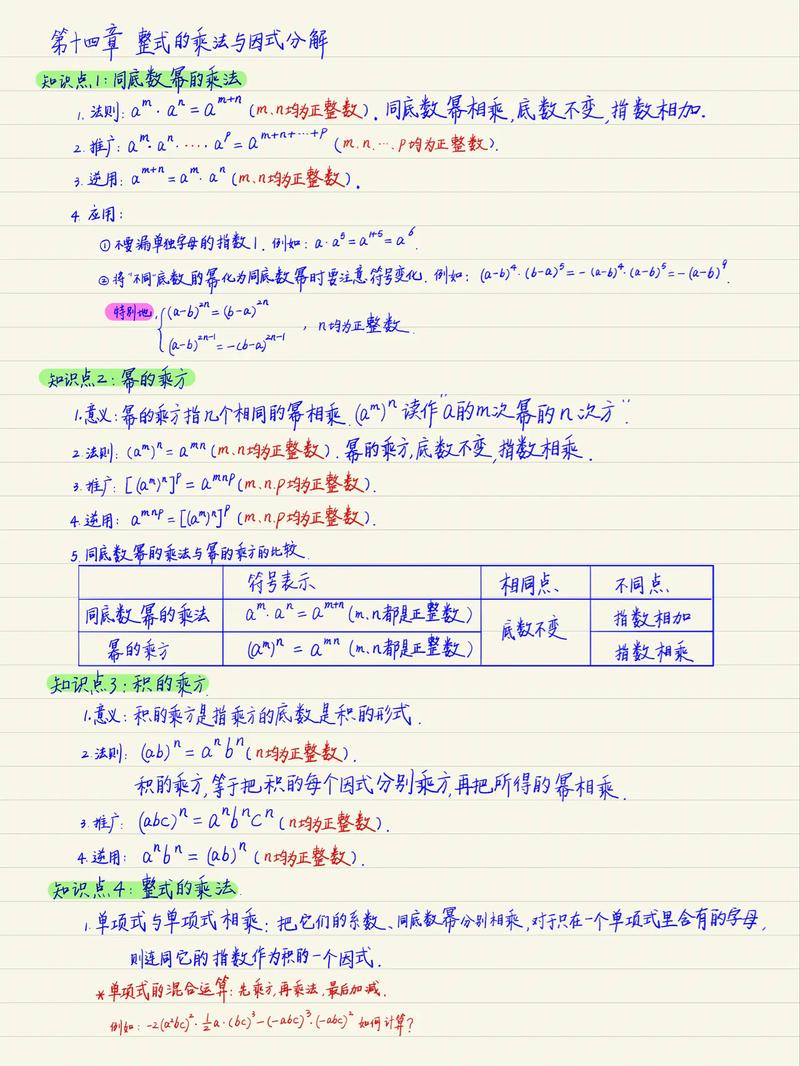 第十四章 整式的乘法与因式分解
知识点1:同底数幂的乘法
1. 法则: aᵐ·aⁿ=aᵐ⁺ⁿ (m、n均为正整数). 同底数幂相乘,底数不变,指数相加.
2. 推广: aᵐ·aⁿ·····aᵖ=aᵐ⁺ⁿ⁺···⁺ᵖ (m.n.···.p均为正整数).
3. 逆用: aᵐ⁺ⁿ=aᵐ·aⁿ (m、n均为正整数).
4. 应用:
①不要漏单独字母的指数1. 例如: a·a⁵=a¹⁺⁵=a⁶.
②将"不同"底数的幂化为同底数幂时要注意符号变化. 例如: (a-b)⁴·(b-a)⁵=-(a-b)⁴·(a-b)⁵=-(a-b)⁹.
特别地, { (a-b)²ⁿ=(b-a)²ⁿ
(a-b)²ⁿ⁻¹=-(b-a)²ⁿ⁻¹ , n均为正整数.
知识点2:幂的乘方
1.意义:幂的乘方指几个相同的幂相乘. (aᵐ)ⁿ 读作"a的m次幂的n次方".
2. 法则: (aᵐ)ⁿ=aᵐⁿ (m、n均为正整数). 幂的乘方,底数不变,指数相乘.
3. 推广: [(aᵐ)ⁿ]ᵖ=aᵐⁿᵖ (m.n.p均为正整数).
4. 逆用: aᵐⁿᵖ=[(aᵐ)ⁿ]ᵖ (m.n.p均为正整数).
5. 同底数幂的乘法与幂的乘方的比较.
符号表示 相同点 不同点
同底数幂的乘法 aᵐ·aⁿ=aᵐ⁺ⁿ (m、n都是正整数) 底数不变 指数相加
幂的乘方 (aᵐ)ⁿ=aᵐⁿ (m、n都是正整数) 指数相乘
知识点3:积的乘方
1.意义:积的乘方是指乘方的底数是积的形式.
2. 法则: (ab)ⁿ=aⁿbⁿ (n均为正整数).
积的乘方,等于把积的每个因式分别乘方,再把所得的幂相乘.
3. 推广: (abc)ⁿ=aⁿbⁿcⁿ (n均为正整数).
4. 逆用: aⁿbⁿ=(ab)ⁿ (n均为正整数).
知识点4:整式的乘法
1.单项式与单项式相乘:把它们的系数、同底数幂分别相乘,对于只在一个单项式里含有的字母,
则连同它的指数作为积的一个因式.
*单项式的混合运算:先乘方,再乘法,最后加减.
例如: -2(a²bc)²·½a·(bc)³-(-abc)³·(-abc)² 如何计算?